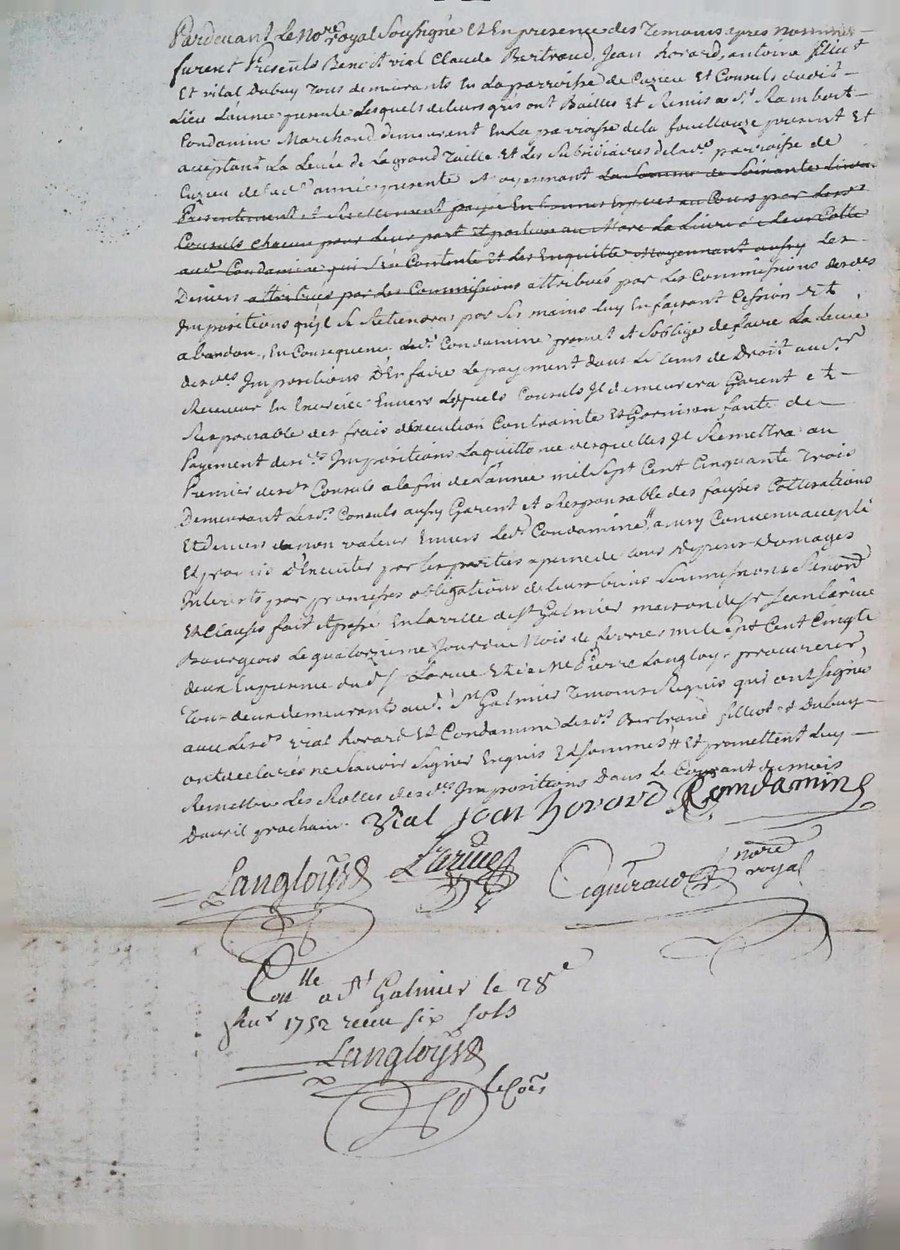 Pardevant Le No.re royal Soussigné Et En presence des Temoins apres nommés
furent Presents Benoit vial Claude Bertrand, Jean horard, antoine filliot
Et vital Dubuy Tous demeurants En La parroisse de Cuzieu Et Consuls dudit
Lieu L'année presente Lesquels de leurs grés ont Baillés Et Remis a Sr. Rambert
Condamine Marchand demeurant En La parroisse de la fouillouze present Et
acceptant La Levée de La grand Taille Et Les Subsidiaires de lad.e parroisse de
Cuzieu de lad.e année presente Moyennant La Somme de Soixante Livres
Presentement et Reellement payée En bonnes Espèces au Cours par Lesd.s
Consuls chacun pour Leur part Et portion au Marc La Livre de Leur Cotte
aud. Condamine qui S'en Contente Et Les En quitte Moyennant aussy Les
Deniers attribués par Les Commissions attribués par Les Commissions desd.es
Impositions qu'il Se Retiendra par Ses mains Luy En faisant Cession Et
abandon, En Consequence Led.t Condamine promet Et S'oblige de faire La Levée
desd.es Impositions D'En faire Le payement dans Le tems de Droit au Sr.
Receveur En Exercice Envers Lesquels Consuls Il demeurera Garent et
Responsable des frais d'execution Contrainte Et Garnison faute de
Payement desd.es Impositions La quittance desquelles Il Remettra au
Premier desd.s Consuls a la fin de L'année mil Sept Cent Cinquante Trois
Demeurant Lesd.s Consuls aussy Garent Et Responsable des fausses Cottisations
Et deniers de non valeur Envers Led.t Condamine, ainsy Convenu accepté
Et promis D'Executer par les parties a peine de tous Depens Domages
Interets par promesses obligations de leurs biens Soumissions Renonc.
Et Clauses fait Et passé En la ville de St. Galmier maison de Sr Jean Larüe
Bourgeois Le quatorzieme Jour du Mois de fevrier mil Sept Cent Cinqte
deux En presence dud. Sr Larue Et de Me Pierre Langloys procureur
Tous deux demeurants aud. St Galmier Temoins Requis qui ont Signé
avec Lesd.s vial horard Et Condamine Lesd.s Bertrand filliot et Dubuy
ont declarés ne Savoir Signer Enquis Et Sommés # Et promettent Luy
Remettre Les Rolles desd.es Impositions Dans Le Courant du mois
D'avril prochain.
Vial Jean horard Condamine
Langloys Larüe Giraud nore royal
Con.lle a St Galmier le 28e
1752 reçu six sols
Langloys